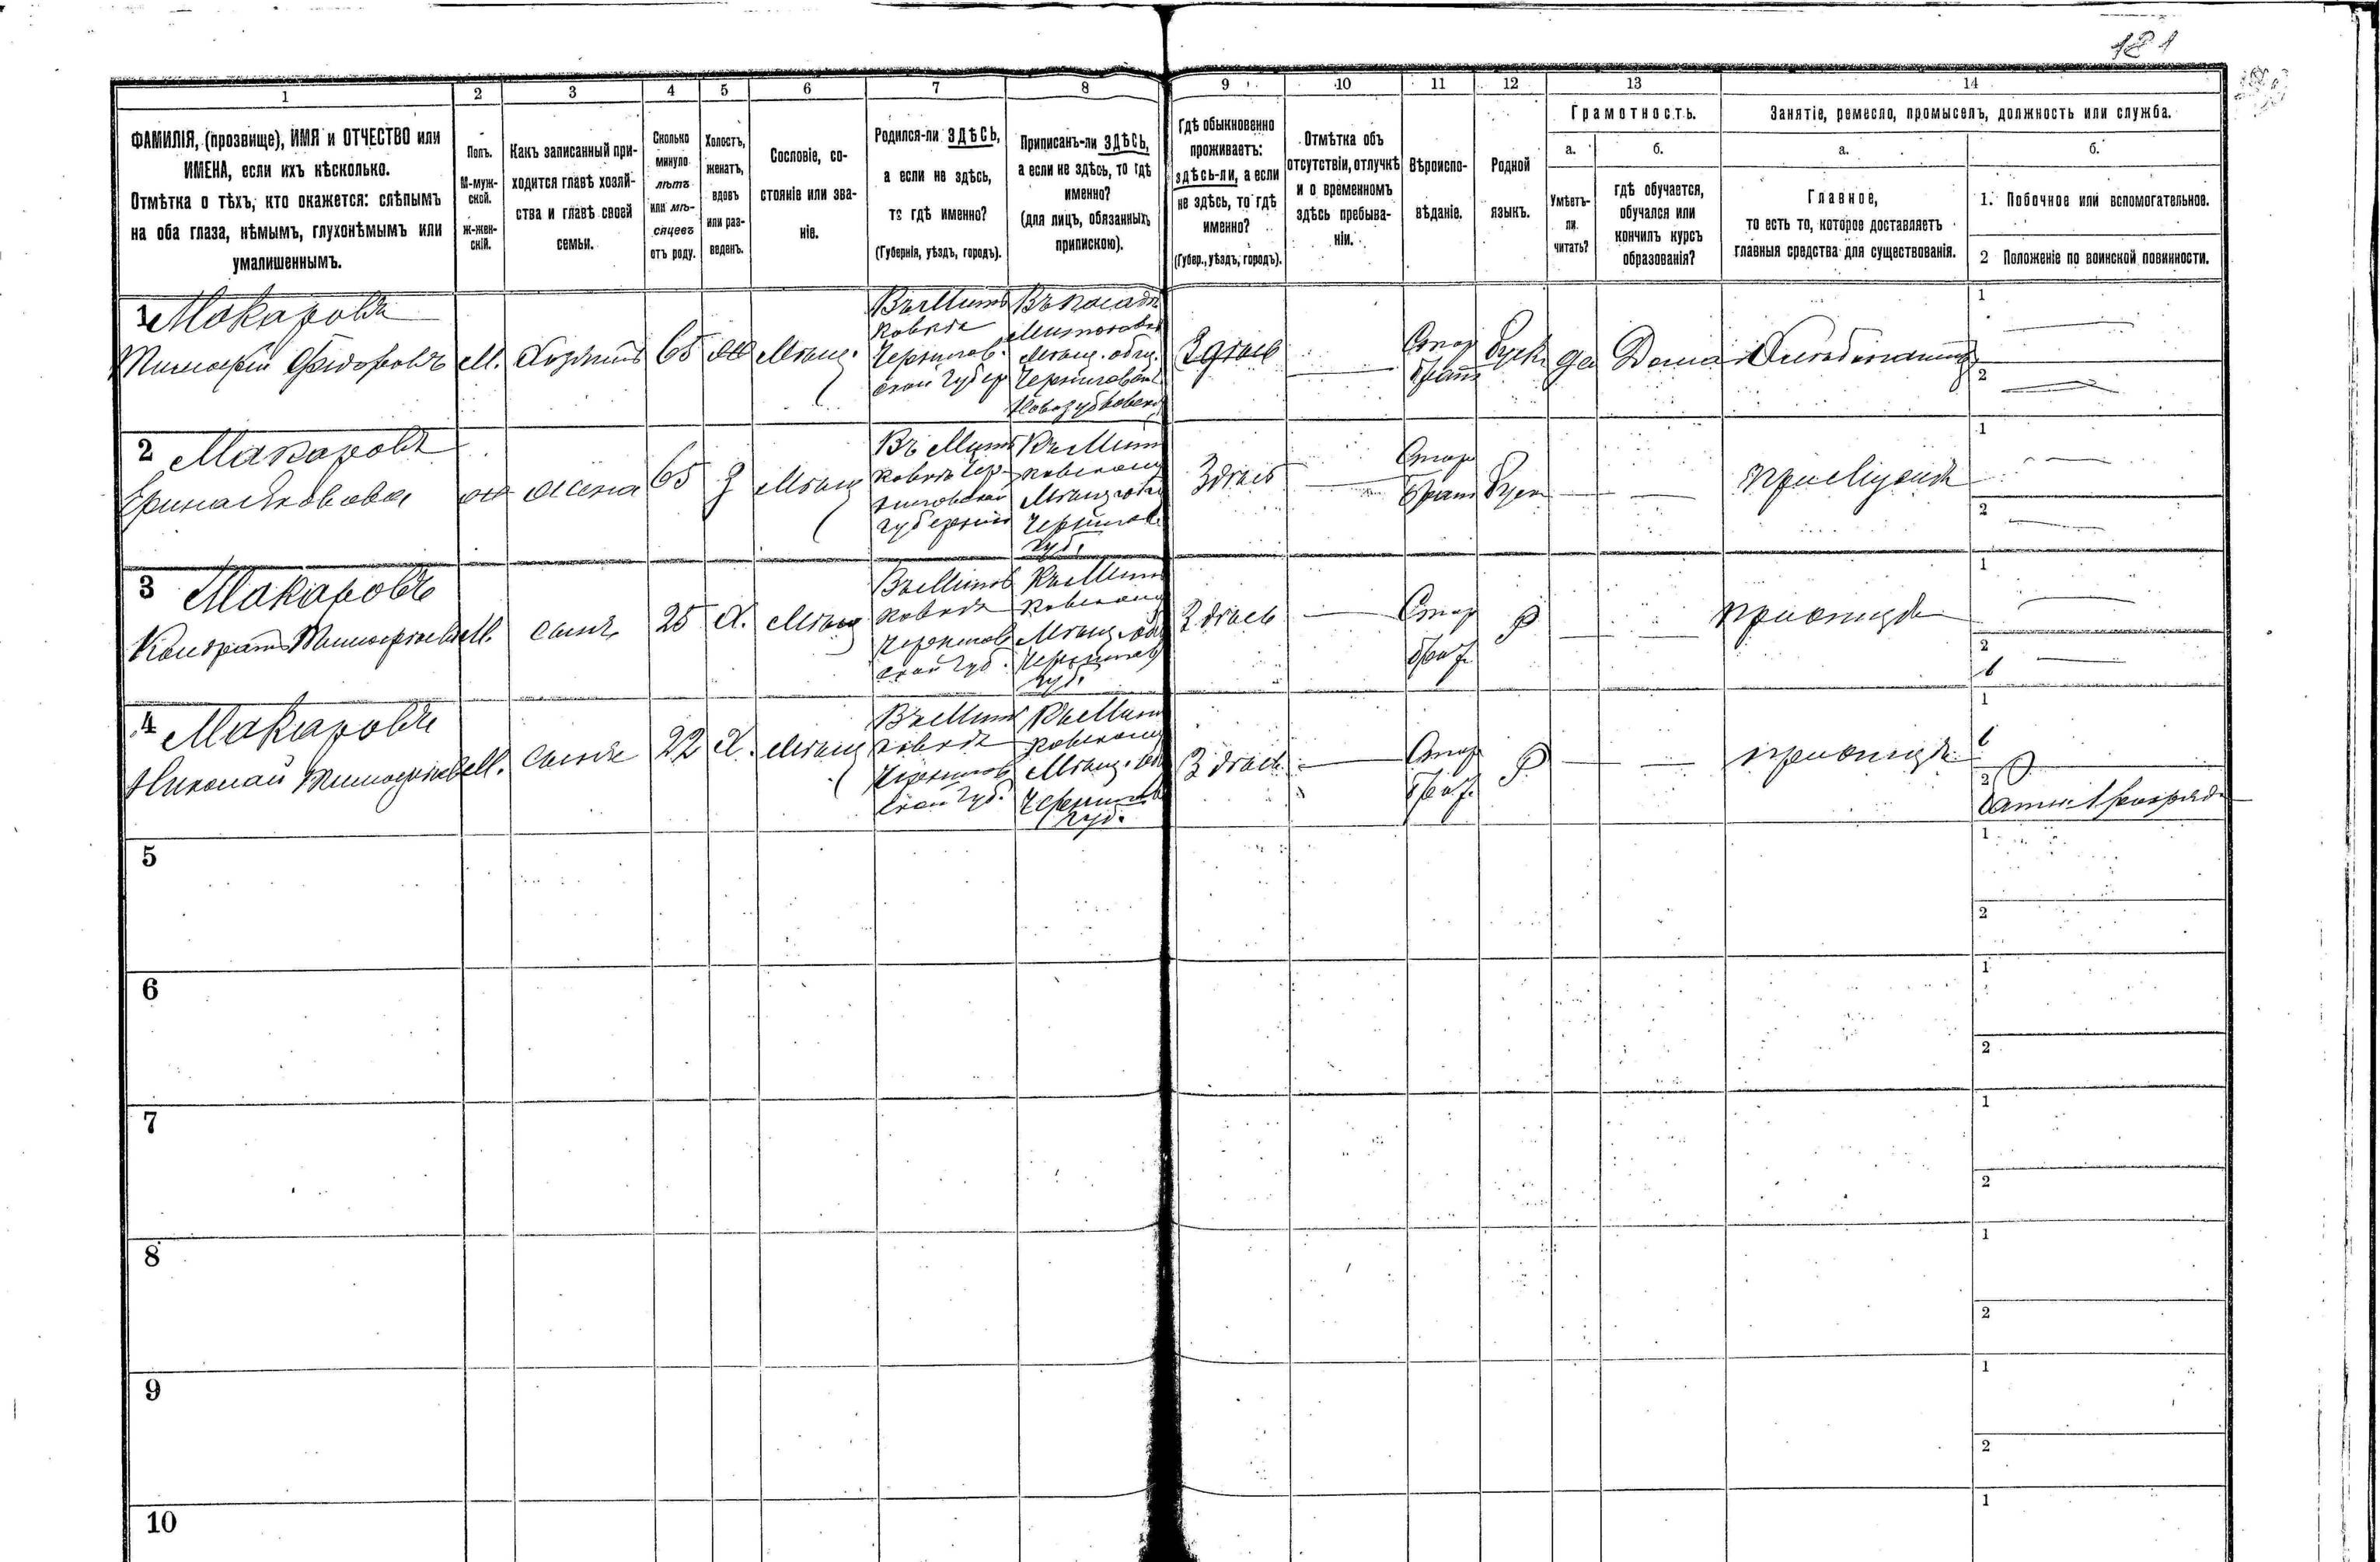 181
1 2 3 4 5 6 7 8 9 10 11 12 13 14
ФАМИЛІЯ, (прозвище), ИМЯ и ОТЧЕСТВО или
ИМЕНА, если ихъ нѣсколько.
Отмѣтка о тѣхъ, кто окажется: слѣпымъ
на оба глаза, нѣмымъ, глухонѣмымъ или
умалишеннымъ.
Полъ.
М-муж-
ской.
Ж-жен-
скій.
Какъ записанный при-
ходится главѣ хозяй-
ства и главѣ своей
семьи.
Сколько
минуло
лѣтъ
или мѣ-
сяцевъ
отъ роду.
Холостъ,
женатъ,
вдовъ
или раз-
веденъ.
Сословіе, со-
стояніе или зва-
ніе.
Родился-ли ЗДѢСЬ,
а если не здѣсь,
то гдѣ именно?
(Губернія, уѣздъ, городъ).
Приписанъ-ли ЗДѢСЬ,
а если не здѣсь, то гдѣ
именно?
(для лицъ, обязанныхъ
припискою).
Гдѣ обыкновенно
проживаетъ:
здѣсь-ли, а если
не здѣсь, то гдѣ
именно?
(Губер., уѣздъ, городъ).
Отмѣтка объ
отсутствіи, отлучкѣ
и о временномъ
здѣсь пребыва-
ніи.
Вѣроиспо-
вѣданіе.
Родной
языкъ.
Грамотность.
а.
Умѣетъ-
ли
читать?
б.
гдѣ обучается,
обучался или
кончилъ курсъ
образованія?
Занятіе, ремесло, промыселъ, должность или служба.
а.
Главное,
то есть то, которое доставляетъ
главныя средства для существованія.
б.
1. Побочное или вспомогательное.
2 Положеніе по воинской повинности.
1 Макаровъ
Тимофей Федоровъ М. Хозяинъ 65 Ж Мѣщ.
Въ Мить
ковкѣ
Чернигов.
ской Губер
Въ посадѣ
Митьковк
Мѣщ. общ.
Чернигов
Новозубковск
Здѣсь
Стар
обрат
Руск да Дома
1
2
2 Макаровъ
Ирина Яковова ж жена 65 З Мѣщ
Въ Мить
ковкѣ Чер-
ниговской
губерніи
Къ Мить
ковскому
Мѣщ об
Чернигов
Губ.
Здѣсь
Стар
обрат
Руск
при Мужѣ
1
2
3 Макаровъ
Кондратъ Тимофеевъ М. сынъ 25 Х. Мѣщ
Въ Мить
ковкѣ
Чернигов
ской Губ.
Къ Мить
ковскому
Мѣщ об
Чернигов
Губ.
Здѣсь
Стар
обр.
Р
при отцѣ
1
2
4 Макаровъ
Николай Тимофеевъ М. сынъ 22 Х. Мѣщ
Въ Мить
ковкѣ
Чернигов
ской Губ.
Къ Мить
ковскому
Мѣщ. об
Чернигов
Губ.
Здѣсь
Стар
обр.
Р
при отцѣ
1
2
5
1
2
6
1
2
7
1
2
8
1
2
9
1
2
10
1